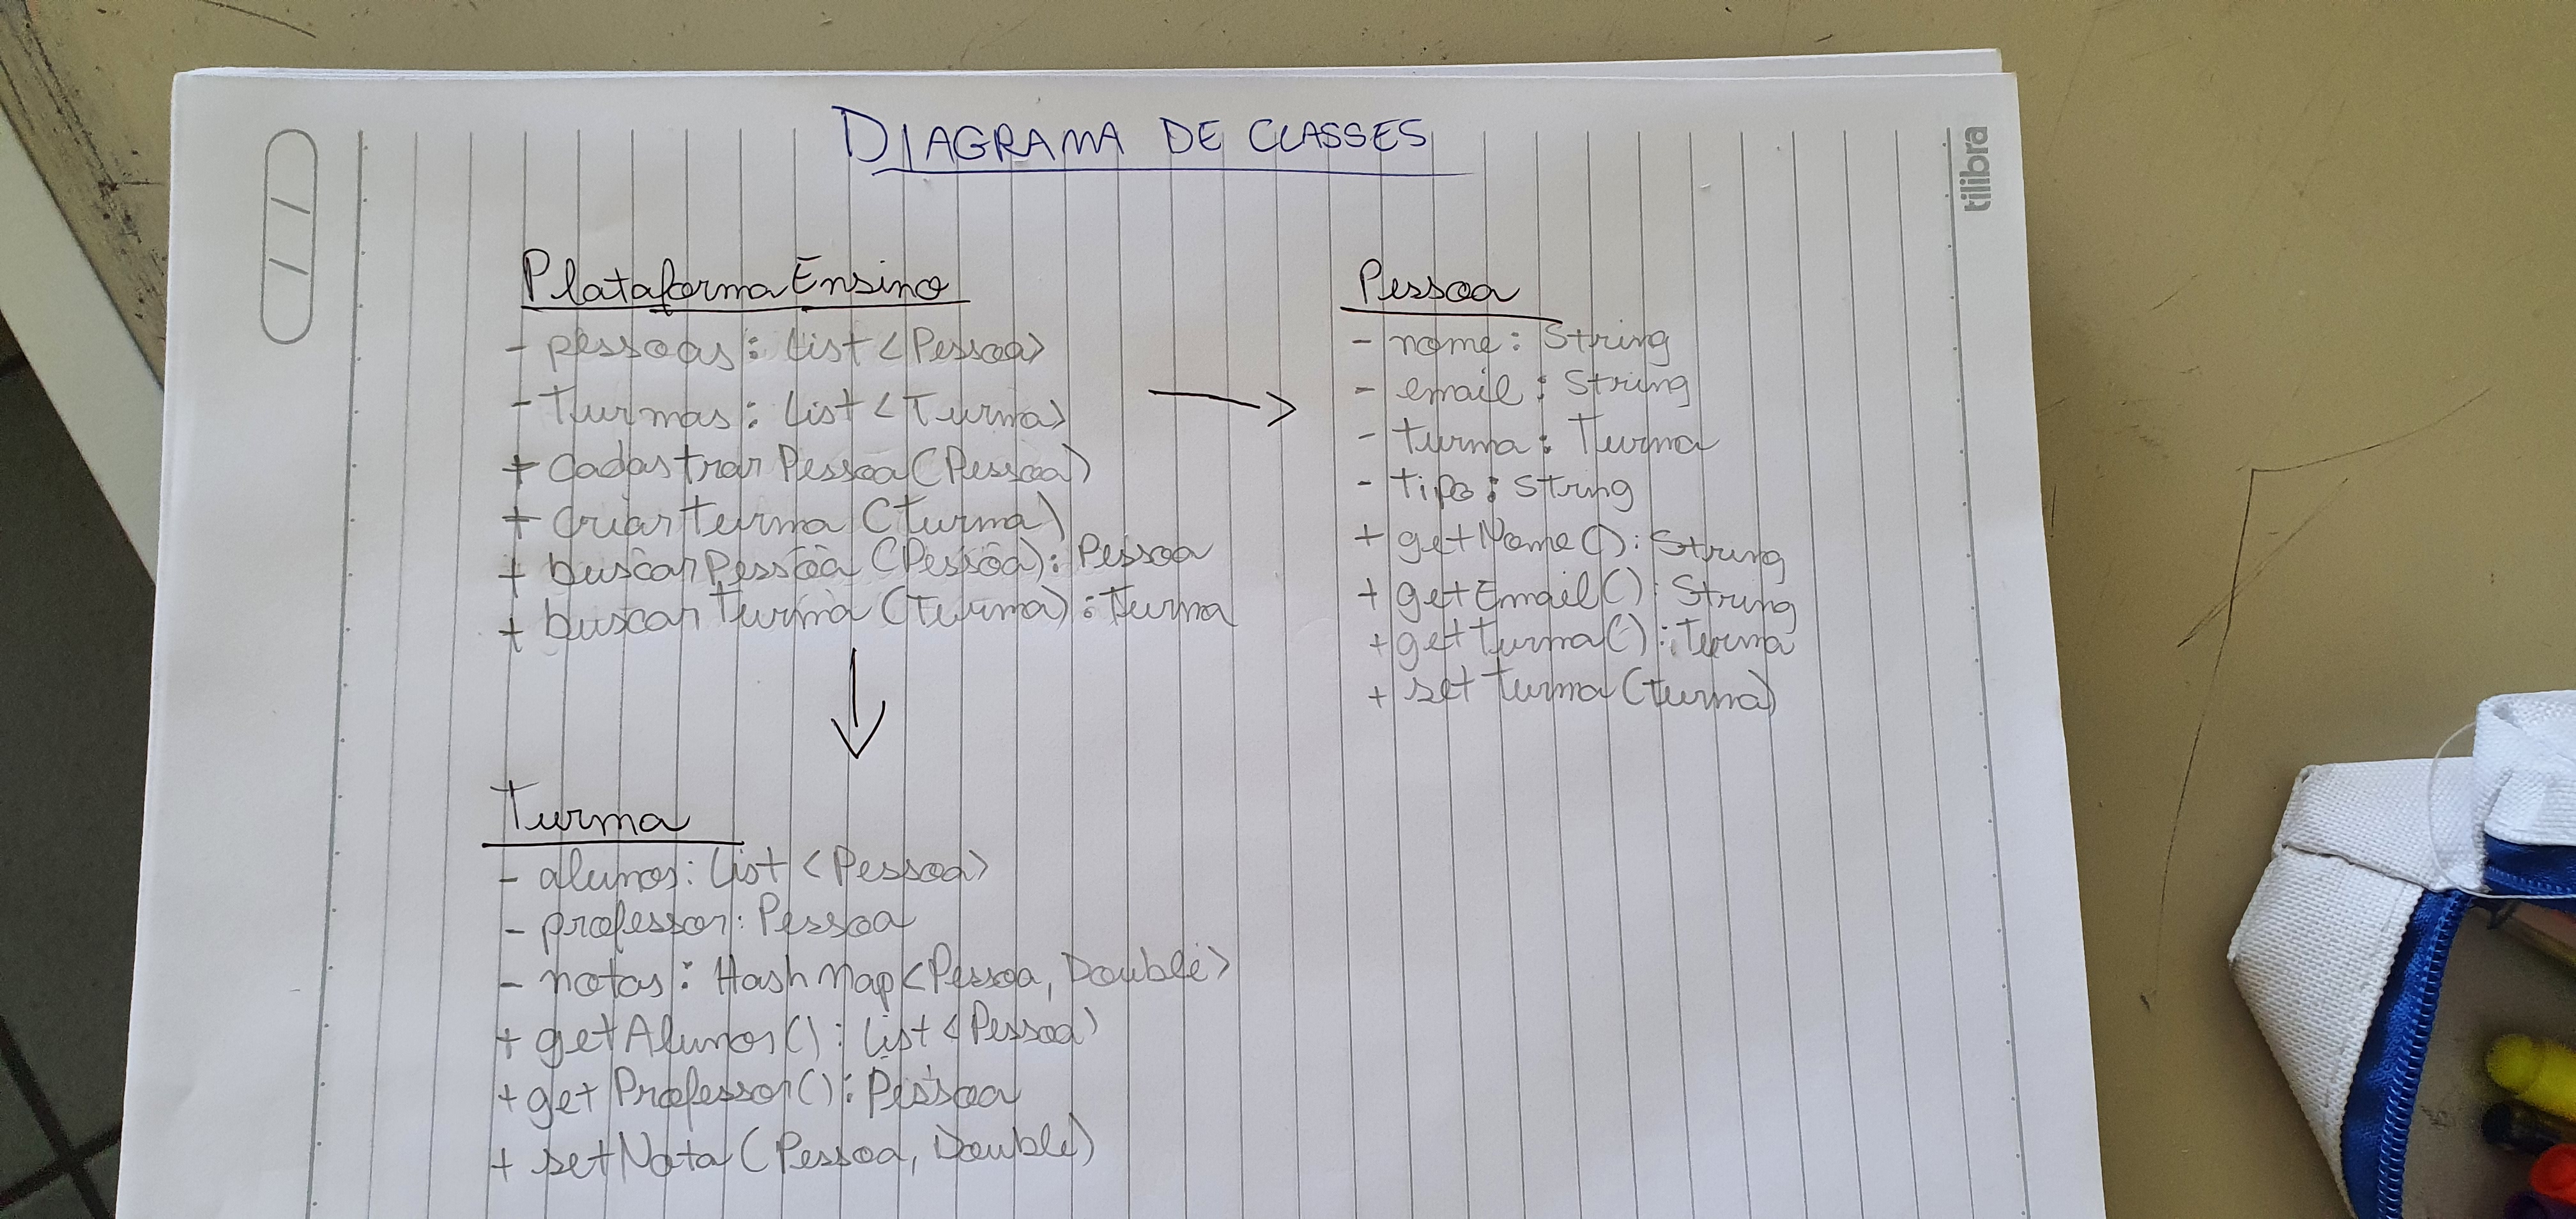 DIAGRAMA DE CLASSES
PlataformaEnsino
- pessoas: List<Pessoa>
- Turmas: List<Turma>
+ cadastrarPessoa(Pessoa)
+ criarTurma(Turma)
+ buscarPessoa(Pessoa): Pessoa
+ buscarTurma(Turma): Turma
Pessoa
- nome: String
- email: String
- turma: Turma
- tipo: String
+ getNome(): String
+ getEmail(): String
+ getTurma(): Turma
+ setTurma(Turma)
Turma
- alunos: List<Pessoa>
- professor: Pessoa
- notas: HashMap<Pessoa, Double>
+ getAlunos(): List<Pessoa>
+ getProfessor(): Pessoa
+ setNota(Pessoa, Double)
tilibra